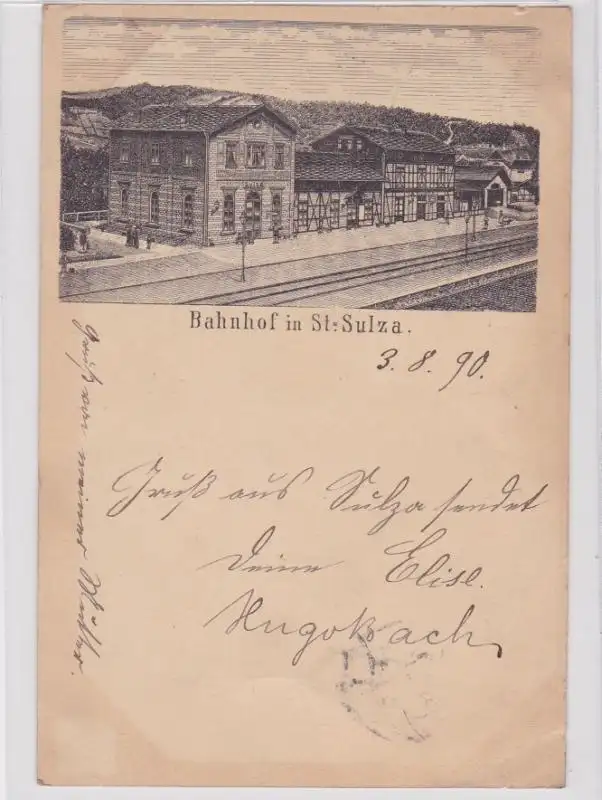 Bahnhof in St=Sulza.
3. 8. 90.
Gruß aus Sulza sendet
Deine Elise.
Hugo Bach
Gruß von meiner Mutter.